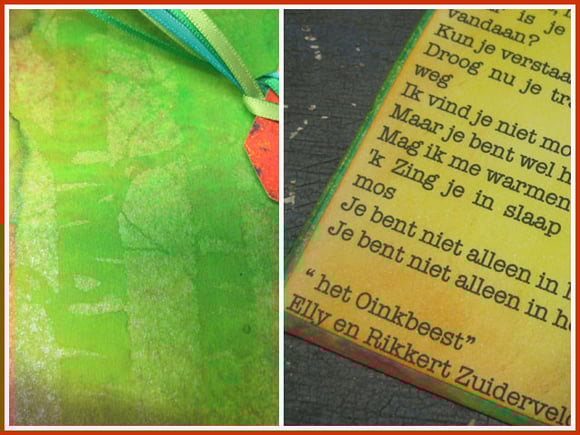 is je
vandaan?
Kun je verstaa
Droog nu je tra
weg
Ik vind je niet mo
Maar je bent wel h
Mag ik me warmen
'k Zing je in slaap
mos
Je bent niet alleen in
Je bent niet alleen in he
“ het Oinkbeest”
Elly en Rikkert Zuidervel